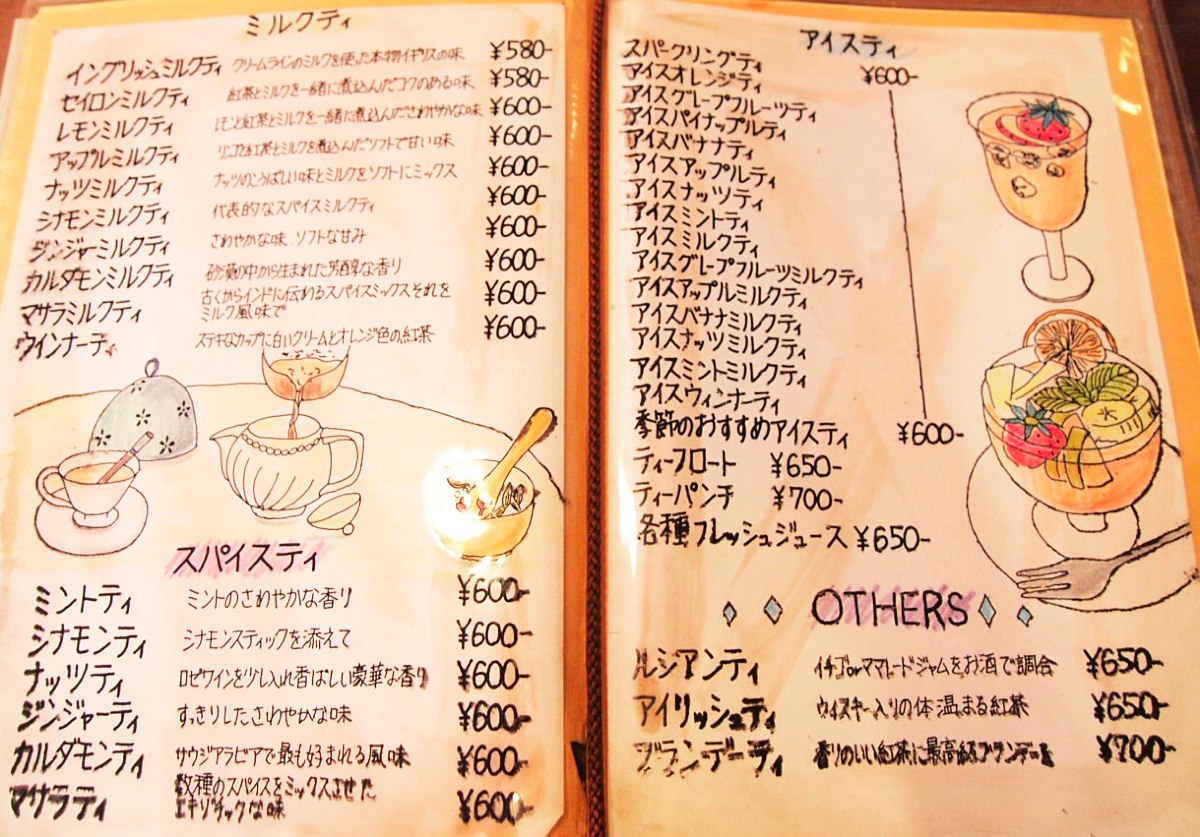 ミルクティ
イングリッシュミルクティ クリームラインのミルクを使った本物イギリスの味 ¥580-
セイロンミルクティ 紅茶とミルクを一緒に煮込んだコクのある味 ¥580-
レモンミルクティ レモンと紅茶とミルクを一緒に煮込んださわやかな味 ¥600-
アップルミルクティ リンゴと紅茶とミルクを煮込んだソフトで甘い味 ¥600-
ナッツミルクティ ナッツのこうばしい味とミルクをソフトにミックス ¥600-
シナモンミルクティ 代表的なスパイスミルクティ ¥600-
ジンジャーミルクティ さわやかな味.ソフトな甘み ¥600-
カルダモンミルクティ 砂漠の中から生まれた芳醇な香り ¥600-
マサラミルクティ 古くからインドに伝わるスパイスミックスそれを
ミルク風味で ¥600-
ウインナーティ ステキなカップに白いクリームとオレンジ色の紅茶 ¥600-
スパイスティ
ミントティ ミントのさわやかな香り ¥600-
シナモンティ シナモンスティックを添えて ¥600-
ナッツティ ロゼワインを少し入れ香ばしい豪華な香り ¥600-
ジンジャーティ すっきりしたさわやかな味 ¥600-
カルダモンティ サウジアラビアで最も好まれる風味 ¥600-
マサラティ 数種のスパイスをミックスさせた
エキゾチックな味 ¥600-
アイスティ
スパークリングティ ¥600-
アイスオレンジティ
アイスグレープフルーツティ
アイスパイナップルティ
アイスバナナティ
アイスアップルティ
アイスナッツティ
アイスミントティ
アイスミルクティ
アイスグレープフルーツミルクティ
アイスアップルミルクティ
アイスバナナミルクティ
アイスナッツミルクティ
アイスミントミルクティ
アイスウィンナーティ
季節のおすすめアイスティ ¥600-
ティーフロート ¥650-
ティーパンチ ¥700-
各種フレッシュジュース ¥650-
OTHERS
ルシアンティ イチゴorママレードジャムをお酒で調合 ¥650-
アイリッシュティ ウィスキー入りの体温まる紅茶 ¥650-
ブランデーティ 香りのいい紅茶に最高級ブランデーを ¥700-